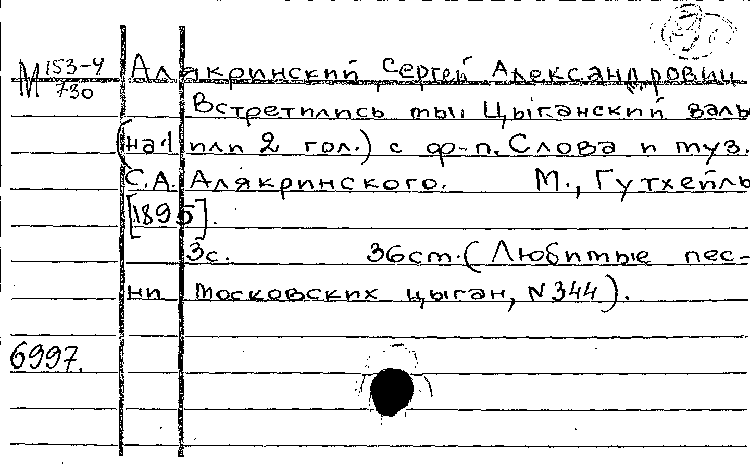 М 153-4/730
Алякринский, Сергей Александрович
Встретились мы. Цыганский валь
(на 1 или 2 гол.) с ф-п. Слова и муз.
С.А. Алякринского. М., Гутхейль
[1895].
3с. 36см. (Любимые пес-
ни московских цыган, N 344).
6997.